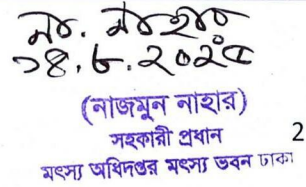 না. নাহার
১৪.৮.২০২৫
(নাজমুন নাহার)
সহকারী প্রধান
মৎস্য অধিদপ্তর মৎস্য ভবন ঢাকা
2